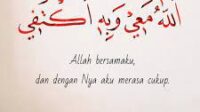 اللهُ مَعِي وَبِهِ أَكْتَفِي
Allah bersamaku,
dan dengan Nya aku merasa cukup.